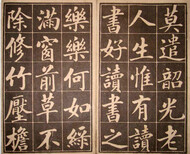 莫遣韶光老
人生惟有讀
書好讀書之
樂樂何如綠
滿窗前草不
除修竹壓檐